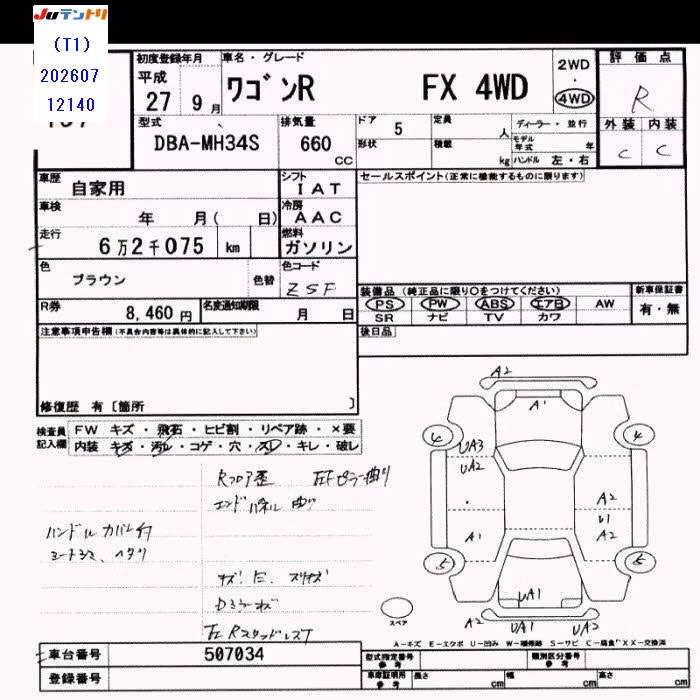 JUテントリ
(T1)
202607
12140
初度登録年月
平成
27 9月
車名・グレード
ワゴンR FX 4WD
2WD
・
4WD
評価点
R
外装 内装
C C
型式
DBA-MH34S
排気量
660 CC
ドア
5
形状
定員
人
積載
kg
ディーラー・並行
モデル年式 年
ハンドル 左・右
車歴
自家用
シフト
I A T
セールスポイント(正常に機能するものに限ります)
車検
年 月( 日)
冷房
A A C
走行
6万2千075 km
燃料
ガソリン
色
ブラウン
色替
色コード
ZSF
装備品(純正品に限り○をつけてください)
PS PW ABS エアB AW
SR ナビ TV カワ
新車保証書
有・無
R券
8,460円
名変通知期限
月 日
後日品
注意事項申告欄(不具合内容等は具体的に記入して下さい)
修復歴 有〔箇所 〕
検査員記入欄
FW キズ・飛石・ヒビ割・リペア跡・×要
内装 キズ・汚レ・コゲ・穴・スレ・キレ・破レ
Rフロア歪
エンドパネル曲り
ハンドルカバー付
シートシミ、ヘタリ
Dミラーキズ
A2
A1
4
4
UA3
UA2
A2
U1
A2
A1
5
5
UA1
スペア
A2 UA1 UA2
A-キズ E-エクボ U-凹み W-補修跡 S-サビ C-腐食 XX-交換済
車台番号
507034
登録番号
型式指定番号
参考
類別区分番号
参考
車庫証明用
参考
長さ cm 幅 cm 高さ cm